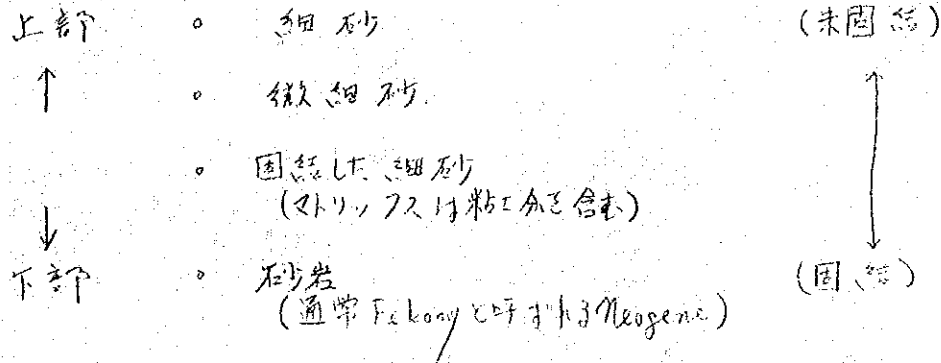 上部 ○ 細砂 (未固結)
↑ ○ 微細砂
○ 固結した細砂
(マトリックスは粘土分を含む)
↓
下部 ○ 砂岩 (固結)
(通常 と呼ばれるNeogene)